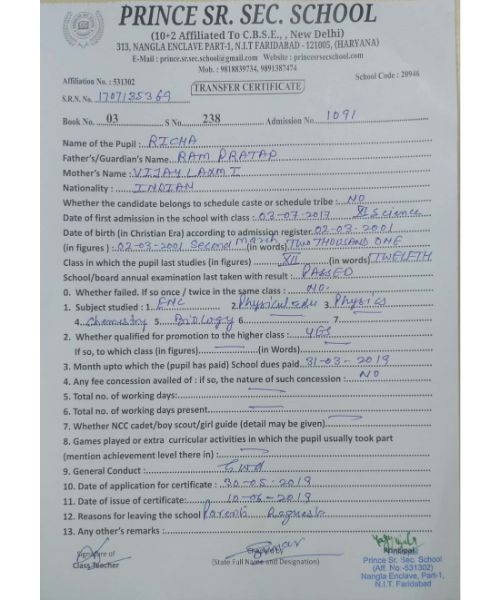 PRINCE SR. SEC. SCHOOL
(10+2 Affiliated To C.B.S.E., New Delhi)
313, NANGLA ENCLAVE PART-1, N.I.T FARIDABAD - 121005, (HARYANA)
E-Mail : prince.sr.sec.school@gmail.com Website : princesrsecschool.com
Mob. : 9818839734, 9891387474
Affiliation No. : 531302 School Code : 20946
TRANSFER CERTIFICATE
S.R.N. No. 1707125369
Book No. 03 S No. 238 Admission No. 1091
Name of the Pupil : RICHA
Father's/Guardian's Name RAM PRATAP
Mother's Name : VIJAY LAXMI
Nationality : INDIAN
Whether the candidate belongs to schedule caste or schedule tribe : NO
Date of first admission in the school with class : 03-07-2017 XI Science
Date of birth (in Christian Era) according to admission register 02-03-2001
(in figures) : 02-03-2001 Second March (in words) TWO THOUSAND ONE
Class in which the pupil last studies (in figures) XII (in words) TWELFTH
School/board annual examination last taken with result : PASSED
0. Whether failed. If so once / twice in the same class : NO.
1. Subject studied : 1. ENG 2. Physical edu 3. Physics
4. Chemistry 5. Biology 6. 7.
2. Whether qualified for promotion to the higher class : YES
If so, to which class (in figures) (in Words)
3. Month upto which the (pupil has paid) School dues paid 31-03-2019
4. Any fee concession availed of : if so, the nature of such concession : NO
5. Total no. of working days:
6. Total no. of working days present
7. Whether NCC cadet/boy scout/girl guide (detail may be given)
8. Games played or extra curricular activities in which the pupil usually took part
(mention achievement level there in) :
9. General Conduct :
10. Date of application for certificate : 30-05-2019
11. Date of issue of certificate: 10-06-2019
12. Reasons for leaving the school Parents Request
13. Any other's remarks :
Signature of
Class Teacher
(State Full Name and Designation)
Principal
Prince Sr. Sec. School
(Aff. No:-531302)
Nangla Enclave, Part-1,
N.I.T. Faridabad